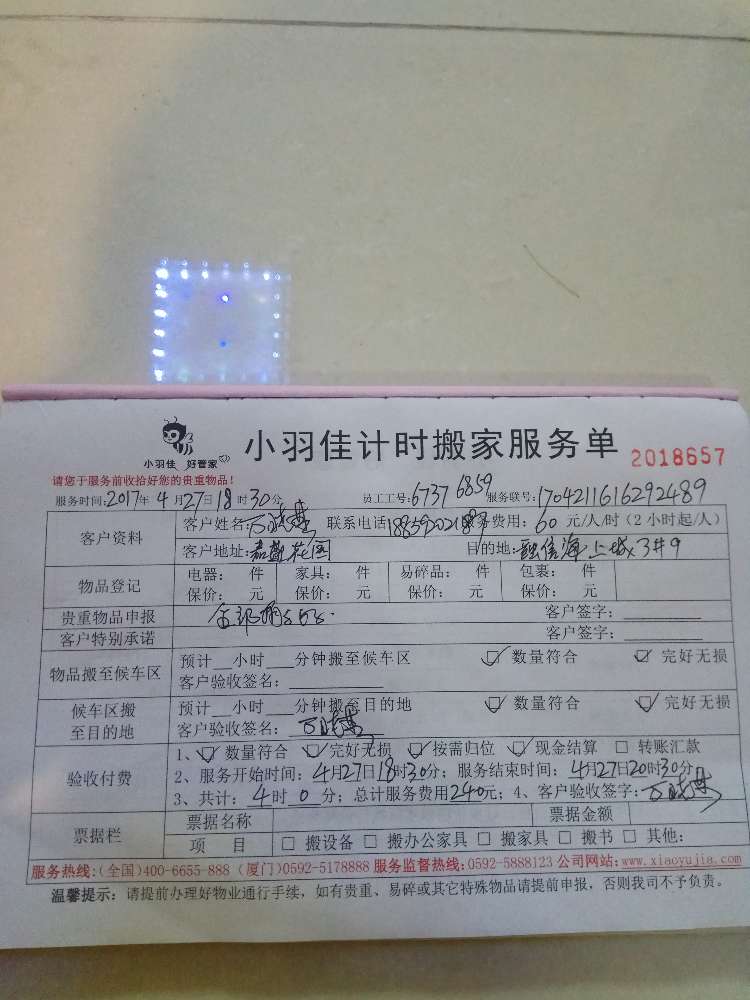 小羽佳 好管家
小羽佳计时搬家服务单
2018657
请您于服务前收拾好您的贵重物品!
服务时间:2017年 4 月 27 日 18 时 30 分 员工工号:6737 6859 服务联号:1704211616292489
客户资料
客户姓名: 联系电话 服务费用: 60 元/人/时(2小时起/人)
客户地址: 花园 目的地:融信海上城 3#9
物品登记
电器: 件 家具: 件 易碎品: 件 包裹: 件
保价: 元 保价: 元 保价: 元 保价: 元
贵重物品申报 客户签字:
客户特别承诺 客户签字:
物品搬至候车区
预计 小时 分钟搬至候车区 ☑ 数量符合 ☑ 完好无损
客户验收签名:
候车区搬至目的地
预计 小时 分钟搬至目的地 ☑ 数量符合 ☑ 完好无损
客户验收签名:
验收付费
1、☑ 数量符合 ☑ 完好无损 ☑ 按需归位 ☑ 现金结算 □ 转账汇款
2、服务开始时间: 4月27日18时30分; 服务结束时间: 4月27日20时30分
3、共计: 4 时 0 分; 总计服务费用240元; 4、客户验收签字:
票据栏
票据名称 票据金额
项 目 □ 搬设备 □ 搬办公家具 □ 搬家具 □ 搬书 □ 其他:
服务热线:(全国)400-6655-888 (厦门)0592-5178888 服务监督热线:0592-5888123 公司网站:www.xiaoyujia.com
温馨提示: 请提前办理好物业通行手续,如有贵重、易碎或其它特殊物品请提前申报,否则我司不予负责。